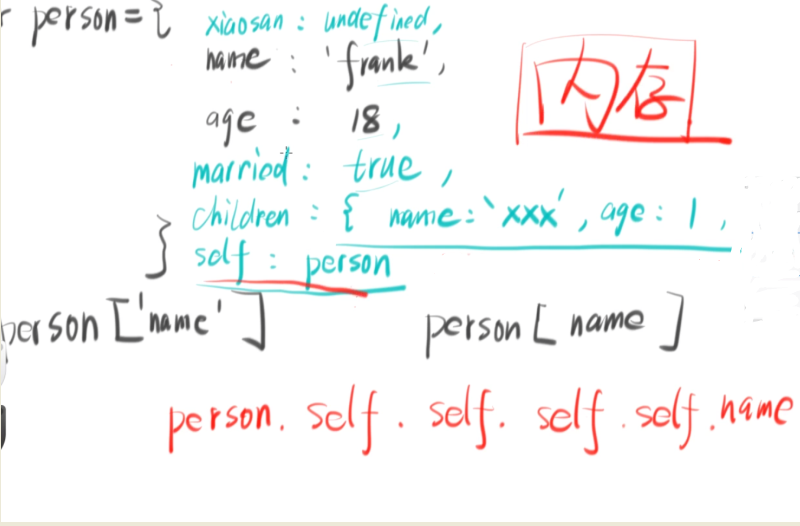 r person={ xiaosan : undefined,
name : 'frank',
内存
age : 18 ,
married : true ,
children : { name:'xxx', age : 1 ,
} self : person
person['name'] person[ name ]
person. self . self. self . self .name